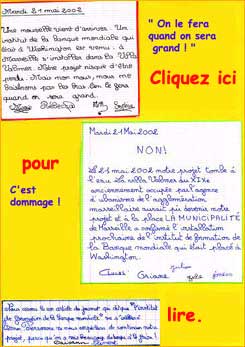 Mardi 21 mai 2002
Une nouvelle vient d'arriver. Un
institut de la Banque mondiale qui
était à Washington est venu à
Marseille s'installer dans la Villa
Valmer. Notre projet risque d'être
perdu. Mais non nous, nous ne
baissons pas les bras. On le fera
quand on sera grand.
" On le fera
quand on sera
grand ! "
Cliquez ici
pour
C'est
dommage !
Mardi 21 Mai 2002
NON!
Le 21 mai 2002 notre projet tombe à
l'eau. La villa Valmer du XIXe
anciennement occupée par l'agence
d'urbanisme de l'agglomération
marseillaire aurait pu devenir notre
projet et à la place LA MUNICIPALITÉ
de Marseille a confirmé l'installation
prochaine de l'institut de formation de
la Banque mondiale qui était placé à
Washington.
Nous avons lu un article de journal qui dit que "l'institut
de formation de la Banque mondiale"
projet, parce qu'on a mis beaucoup de temps à le faire !
lire.